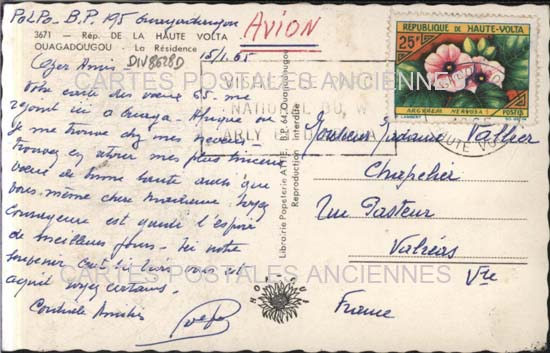 PolPo - B.P. 195 Ouagadougou
AVION
3671 - Rép. DE LA HAUTE VOLTA
OUAGADOUGOU - La Résidence
DIV8628D
15/1.65
Chers Amis
Votre carte des voeux 65 me
rejoint ici à Ouaga - Afrique où
je me trouve chez mes neveux
trouvez en retour mes plus sincères
voeux de bonne santé ainsi que
vous-même chère Madame. Soyez
courageuse et gardez l'espoir
de meilleurs jours - Ici notre
souvenir
vous et
soyez certains.
Cordiale Amitié
Librairie Papeterie ATTIE, B.P. 64, Ouagadougou
interdite
REPUBLIQUE DE HAUTE-VOLTA
25F
ARGYREIA NERVOSA
POSTES
P. LAMBERT
VISITEZ
NATIONAUX DU W
ARLY
HAUTE VOLTA
Monsieur Madame Vallier
Chapelier
Rue Pasteur
Valréas
Vse
France
CARTES POSTALES ANCIENNES
CARTES POSTALES ANCIENNES